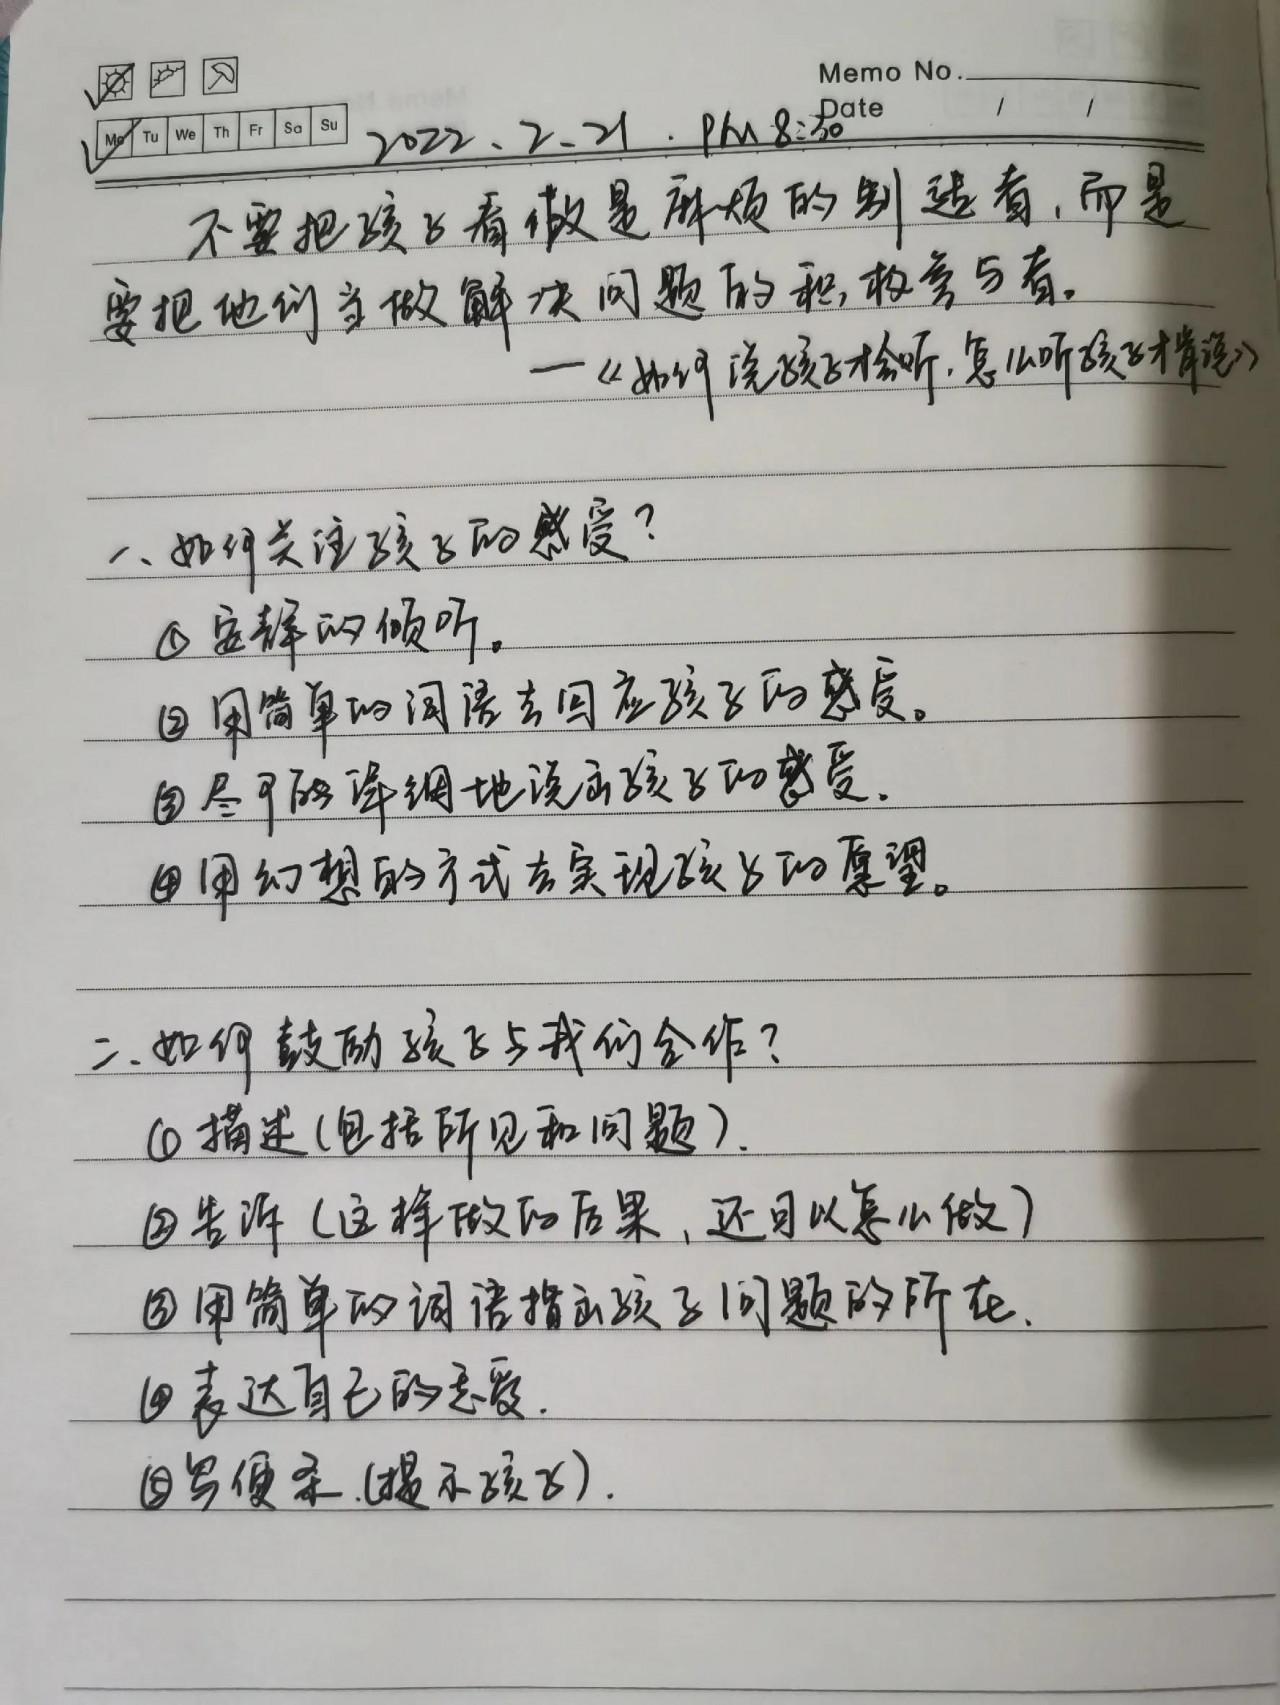 Memo No.
Mo Tu We Th Fr Sa Su
Date / /
2022.2.21. PM 8:30
不要把孩子看做是麻烦的制造者，而是
要把他们当做解决问题的积极参与者。
—《如何说孩子才会听，怎么听孩子才肯说》
一、如何关注孩子的感受？
①安静的倾听。
②用简单的词语去回应孩子的感受。
③尽可能详细地说出孩子的感受。
④用幻想的方式去实现孩子的愿望。
二、如何鼓励孩子与我们合作？
①描述(包括所见和问题).
②告诉(这样做的后果，还可以怎么做)
③用简单的词语指出孩子问题的所在.
④表达自己的感受.
⑤写便条.(提示孩子).